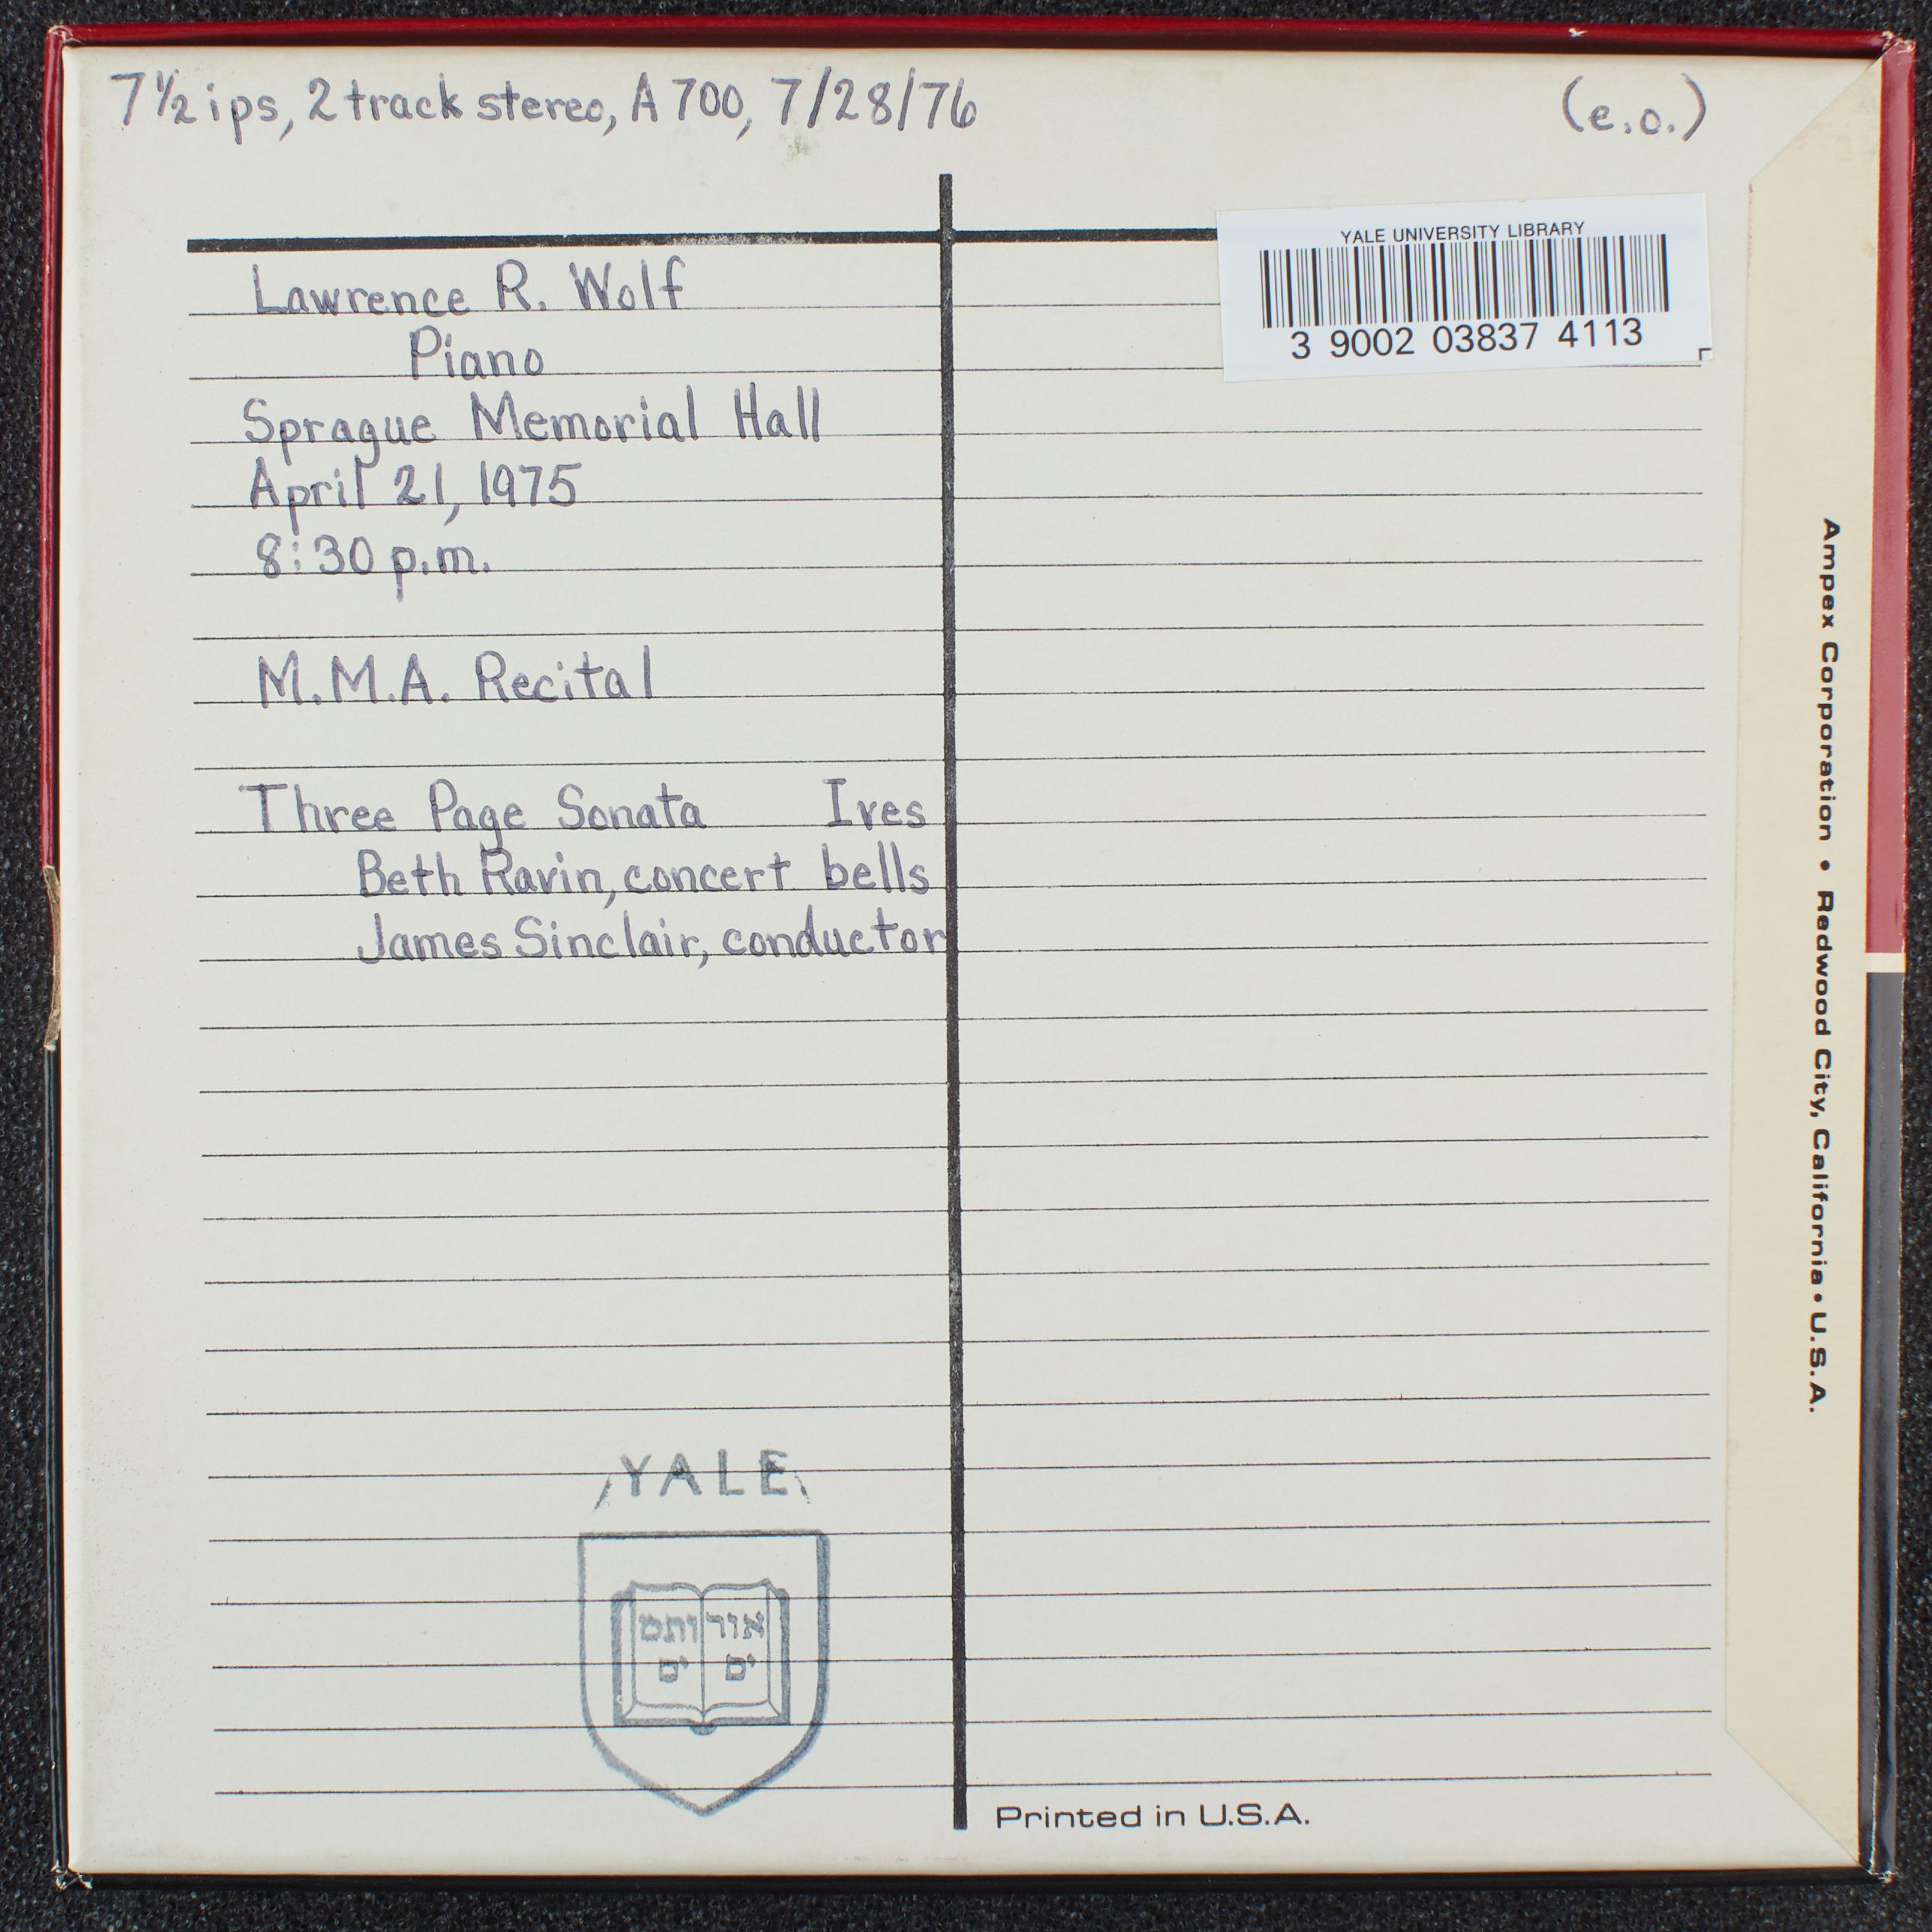 7½ ips, 2 track stereo, A 700, 7/28/76
(e.o.)
YALE UNIVERSITY LIBRARY
3 9002 03837 4113
Lawrence R. Wolf
Piano
Sprague Memorial Hall
April 21, 1975
8:30 p.m.
M.M.A. Recital
Three Page Sonata Ives
Beth Ravin, concert bells
James Sinclair, conductor
YALE
אור ותמ
ים ים
Printed in U.S.A.
Ampex Corporation • Redwood City, California • U.S.A.